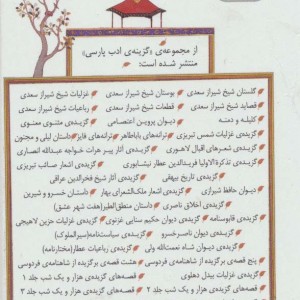 از مجموعه‌ی «گزینه‌ی ادب پارسی»
منتشر شده است:
گلستان شیخ شیراز سعدی بوستان شیخ شیراز سعدی غزلیات شیخ شیراز سعدی
قصاید شیخ شیراز سعدی قطعات شیخ شیراز سعدی رباعیات شیخ شیراز سعدی
کلیله و دمنه دیوان پروین اعتصامی گزیده‌ی مثنوی معنوی
گزیده‌ی غزلیات شمس تبریزی ترانه‌های باباطاهر ترانه‌های فایز داستان لیلی و مجنون
گزیده‌ی شعرهای اقبال لاهوری گزیده‌ی آثار پیر هرات خواجه عبدالله انصاری
گزیده‌ی تذکرة الاولیا فریدالدین عطار نیشابوری گزیده‌ی اشعار صائب تبریزی
گزیده‌ی تاریخ بیهقی گزیده‌ی آثار شیخ فخرالدین عراقی
دیوان حافظ شیرازی گزیده‌ی اشعار ملک‌الشعرای بهار داستان خسرو و شیرین
گزیده‌ی اخلاق ناصری داستان منطق‌الطیر (هفت شهر عشق)
گزیده‌ی قابوسنامه گزیده‌ی دیوان حکیم سنایی غزنوی گزیده‌ی غزلیات حزین لاهیجی
گزیده‌ی دیوان ناصرخسرو گزیده‌ی سیاستنامه (سیرالملوک)
گزیده‌ی دیوان شاه نعمت‌الله ولی گزیده‌ی رباعیات عطار (مختارنامه)
پنج قصه‌ی برگزیده از شاهنامه‌ی فردوسی هشت قصه‌ی برگزیده از شاهنامه‌ی فردوسی
گزیده‌ی غزلیات بیدل دهلوی قصه‌های گزیده‌ی هزار و یک شب جلد ۱
قصه‌های گزیده‌ی هزار و یک شب جلد ۲ قصه‌های گزیده‌ی هزار و یک شب جلد ۳